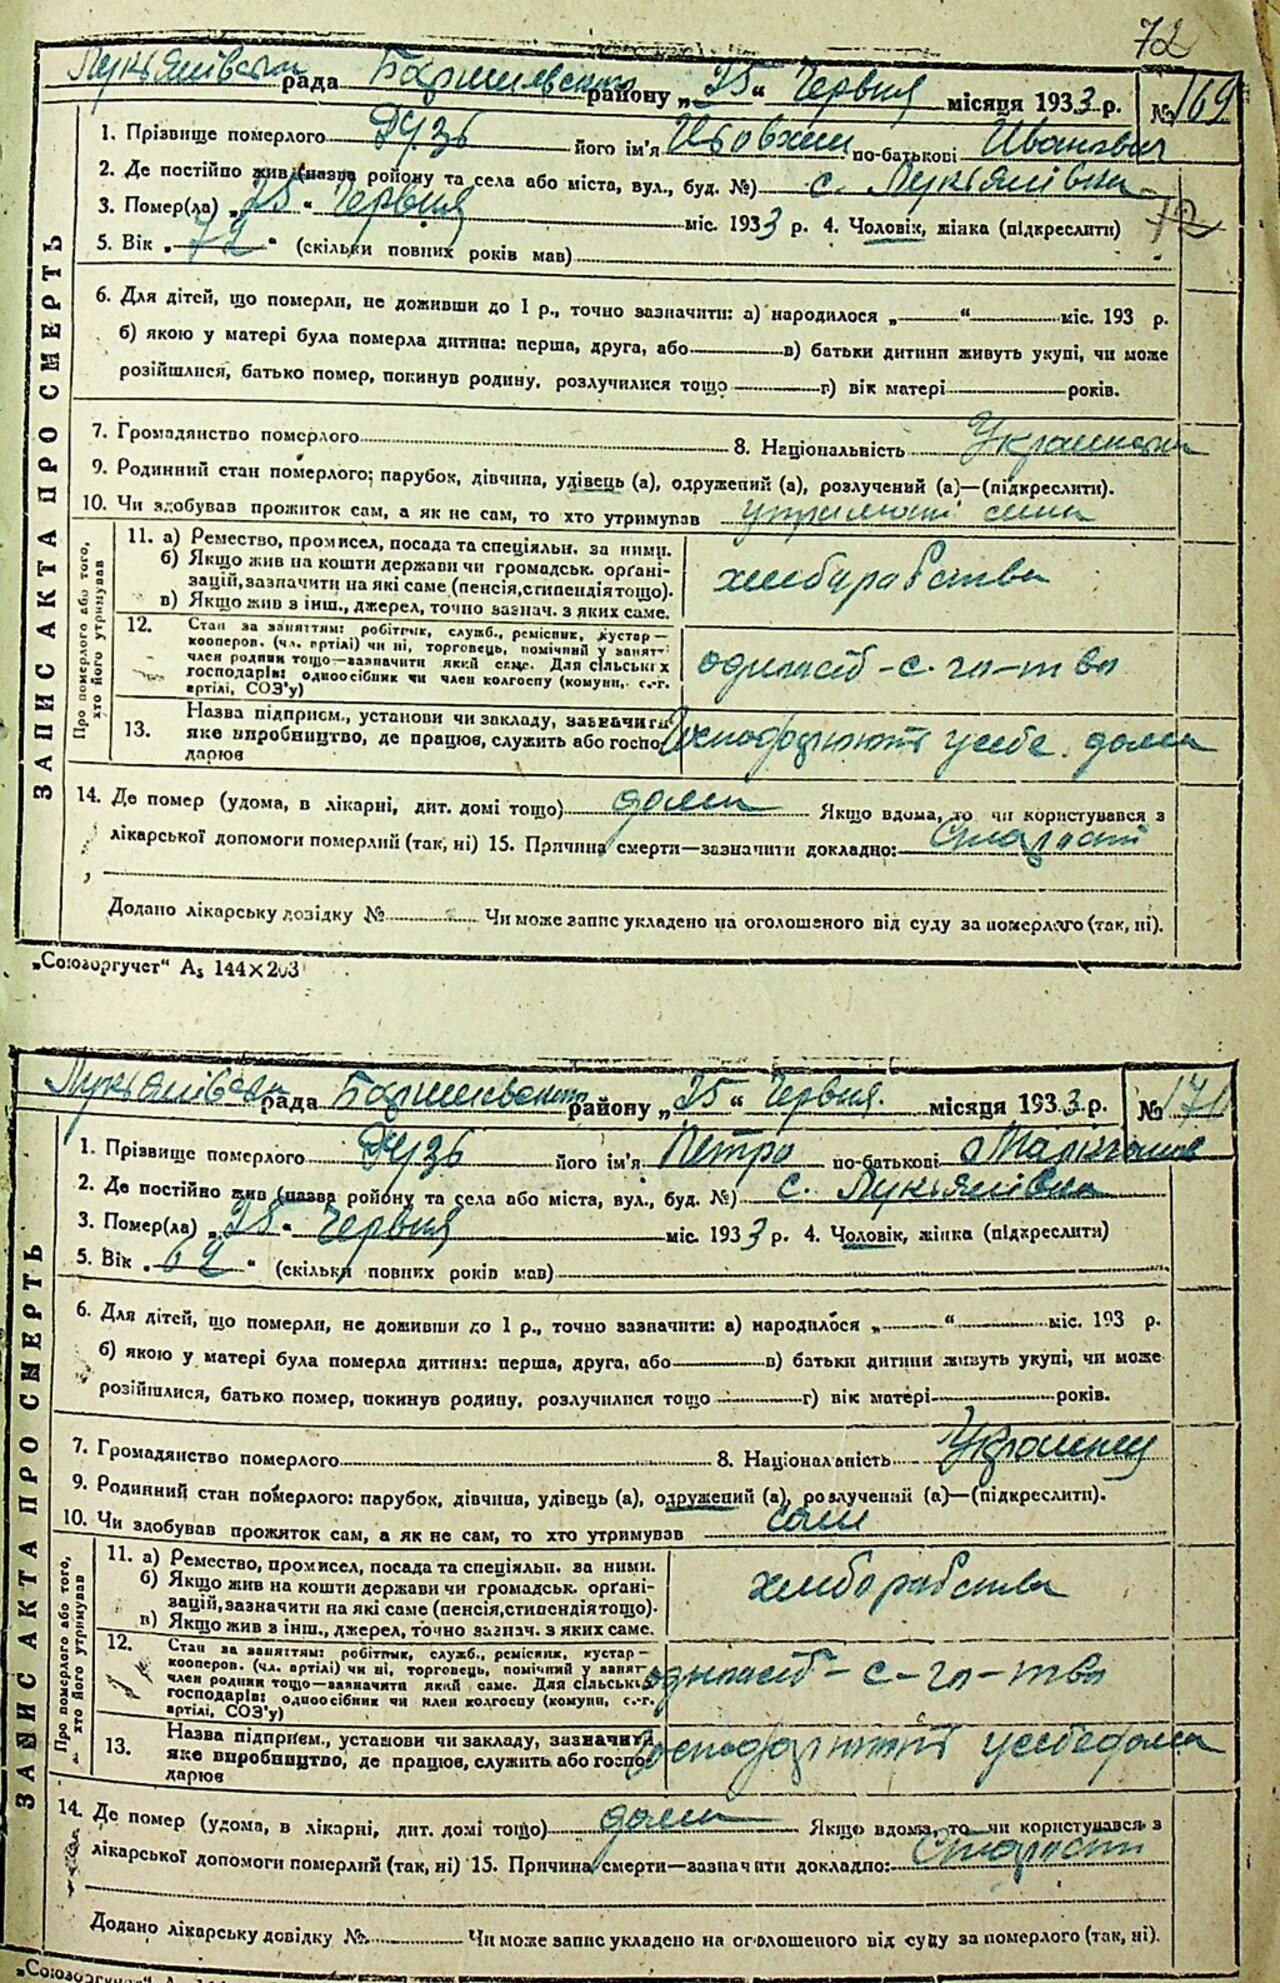 72
Лукьянівська рада Баришевського району „25“ Червня місяця 1933 р. № 169
1. Прізвище померлого Дузь його ім'я по-батькові Иванович
2. Де постійно жив (назва району та села або міста, вул., буд. №) с. Лукьянівка
3. Помер(ла) „25“ Червня міс. 1933 р. 4. Чоловік, жінка (підкреслити)
72
5. Вік „72“ (скільки повних років мав)
6. Для дітей, що померли, не доживши до 1 р., точно зазначити: а) народилося „ “ міс. 193 р.
б) якою у матері була померла дитина: перша, друга, або в) батьки дитини живуть укупі, чи може
розійшлися, батько помер, покинув родину, розлучилися тощо г) вік матері років.
7. Громадянство померлого 8. Національність
9. Родинний стан померлого; парубок, дівчина, удівець (а), одружений (а), розлучений (а)—(підкреслити).
10. Чи здобував прожиток сам, а як не сам, то хто утримував утриманні сина
ЗАПИС АКТА ПРО СМЕРТЬ
Про померлого або того, хто його утримував
11. а) Ремество, промисел, посада та спеціяльн. за ними.
б) Якщо жив на кошти держави чи громадськ. орґані-
зацій, зазначити на які саме (пенсія, стипендія тощо).
в) Якщо жив з інш., джерел, точно зазнач. з яких саме.
хлиборабства
12. Стан за заняттям: робітник, служб., ремісник, кустар—
кооперов. (чл. артілі) чи ні, торговець, помічний у занят-
член родини тощо—зазначити який саме. Для сільських
господарів: одноосібник чи член колгоспу (комуни, с.-г.
артілі, СОЗ'у)
одноосіб - с. гп-тво
13. Назва підприєм., установи чи закладу, зазначити
яке виробництво, де працює, служить або госпо-
дарює
усебе дома
14. Де помер (удома, в лікарні, дит. домі тощо) дома Якщо вдома, то чи користувався з
лікарської допомоги померлий (так, ні) 15. Причина смерти—зазначити докладно: Старости
Додано лікарську довідку № Чи може запис укладено на оголошеного від суду за померлого (так, ні).
„Союзоргучет“ А₅ 144×203
Лукьянівська рада Баришевського району „25“ Червня. місяця 1933 р. № 171
1. Прізвище померлого Дузь його ім'я Петро по-батькові
2. Де постійно жив (назва району та села або міста, вул., буд. №) с. Лукьянівка
3. Помер(ла) „25“ Червня міс. 1933 р. 4. Чоловік, жінка (підкреслити)
5. Вік „62“ (скільки повних років мав)
6. Для дітей, що померли, не доживши до 1 р., точно зазначити: а) народилося „ “ міс. 193 р.
б) якою у матері була померла дитина: перша, друга, або в) батьки дитини живуть укупі, чи може
розійшлися, батько помер, покинув родину, розлучилися тощо г) вік матері років.
7. Громадянство померлого 8. Національність Украинец
9. Родинний стан померлого: парубок, дівчина, удівець (а), одружений (а), розлучений (а)—(підкреслити).
10. Чи здобував прожиток сам, а як не сам, то хто утримував сам
ЗАПИС АКТА ПРО СМЕРТЬ
Про померлого або того, хто його утримував
11. а) Ремество, промисел, посада та спеціяльн. за ними.
б) Якщо жив на кошти держави чи громадськ. орґані-
зацій, зазначити на які саме (пенсія, стипендія тощо).
в) Якщо жив з інш., джерел, точно зазнач. з яких саме.
хлиборабства
12. Стан за заняттям: робітник, служб., ремісник, кустар—
кооперов. (чл. артілі) чи ні, торговець, помічний у занят-
член родини тощо—зазначити який саме. Для сільських
господарів: одноосібник чи член колгоспу (комуни, с.-г.
артілі, СОЗ'у)
одноосіб - с-гп-тво
13. Назва підприєм., установи чи закладу, зазначити
яке виробництво, де працює, служить або госпо-
дарює
усебе дома
14. Де помер (удома, в лікарні, дит. домі тощо) дома Якщо вдома, то чи користувався з
лікарської допомоги померлий (так, ні) 15. Причина смерти—зазначити докладно: Старости
Додано лікарську довідку № Чи може запис укладено на оголошеного від суду за померлого (так, ні).
„Союзоргучет“